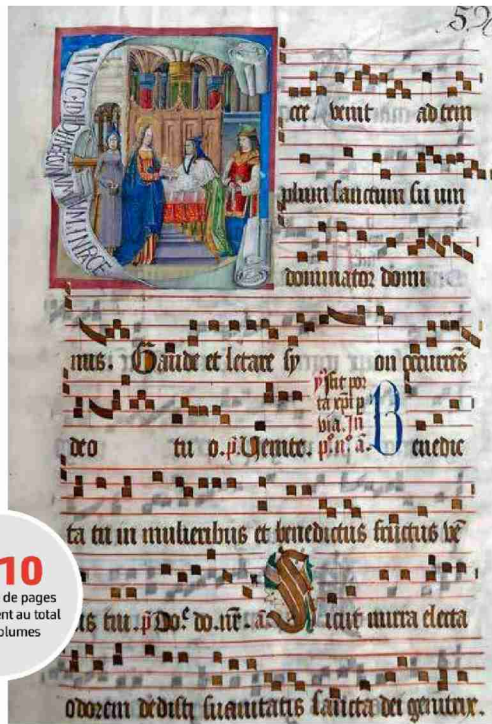 cce venit ad tem
plum sanctum su um
dominator domi
nus. Gaude et letare sy on occurens
deo tu o. p̃. Venite. B enedic
ta tu in mulieribus et benedictus fructus vẽ
is tui. p̃ Do.ᵉ do. nr̃e. a. Sicut mirra electa
odorem dedisti suauitatis sancta dei genitrix.
10
de pages
ent au total
olumes